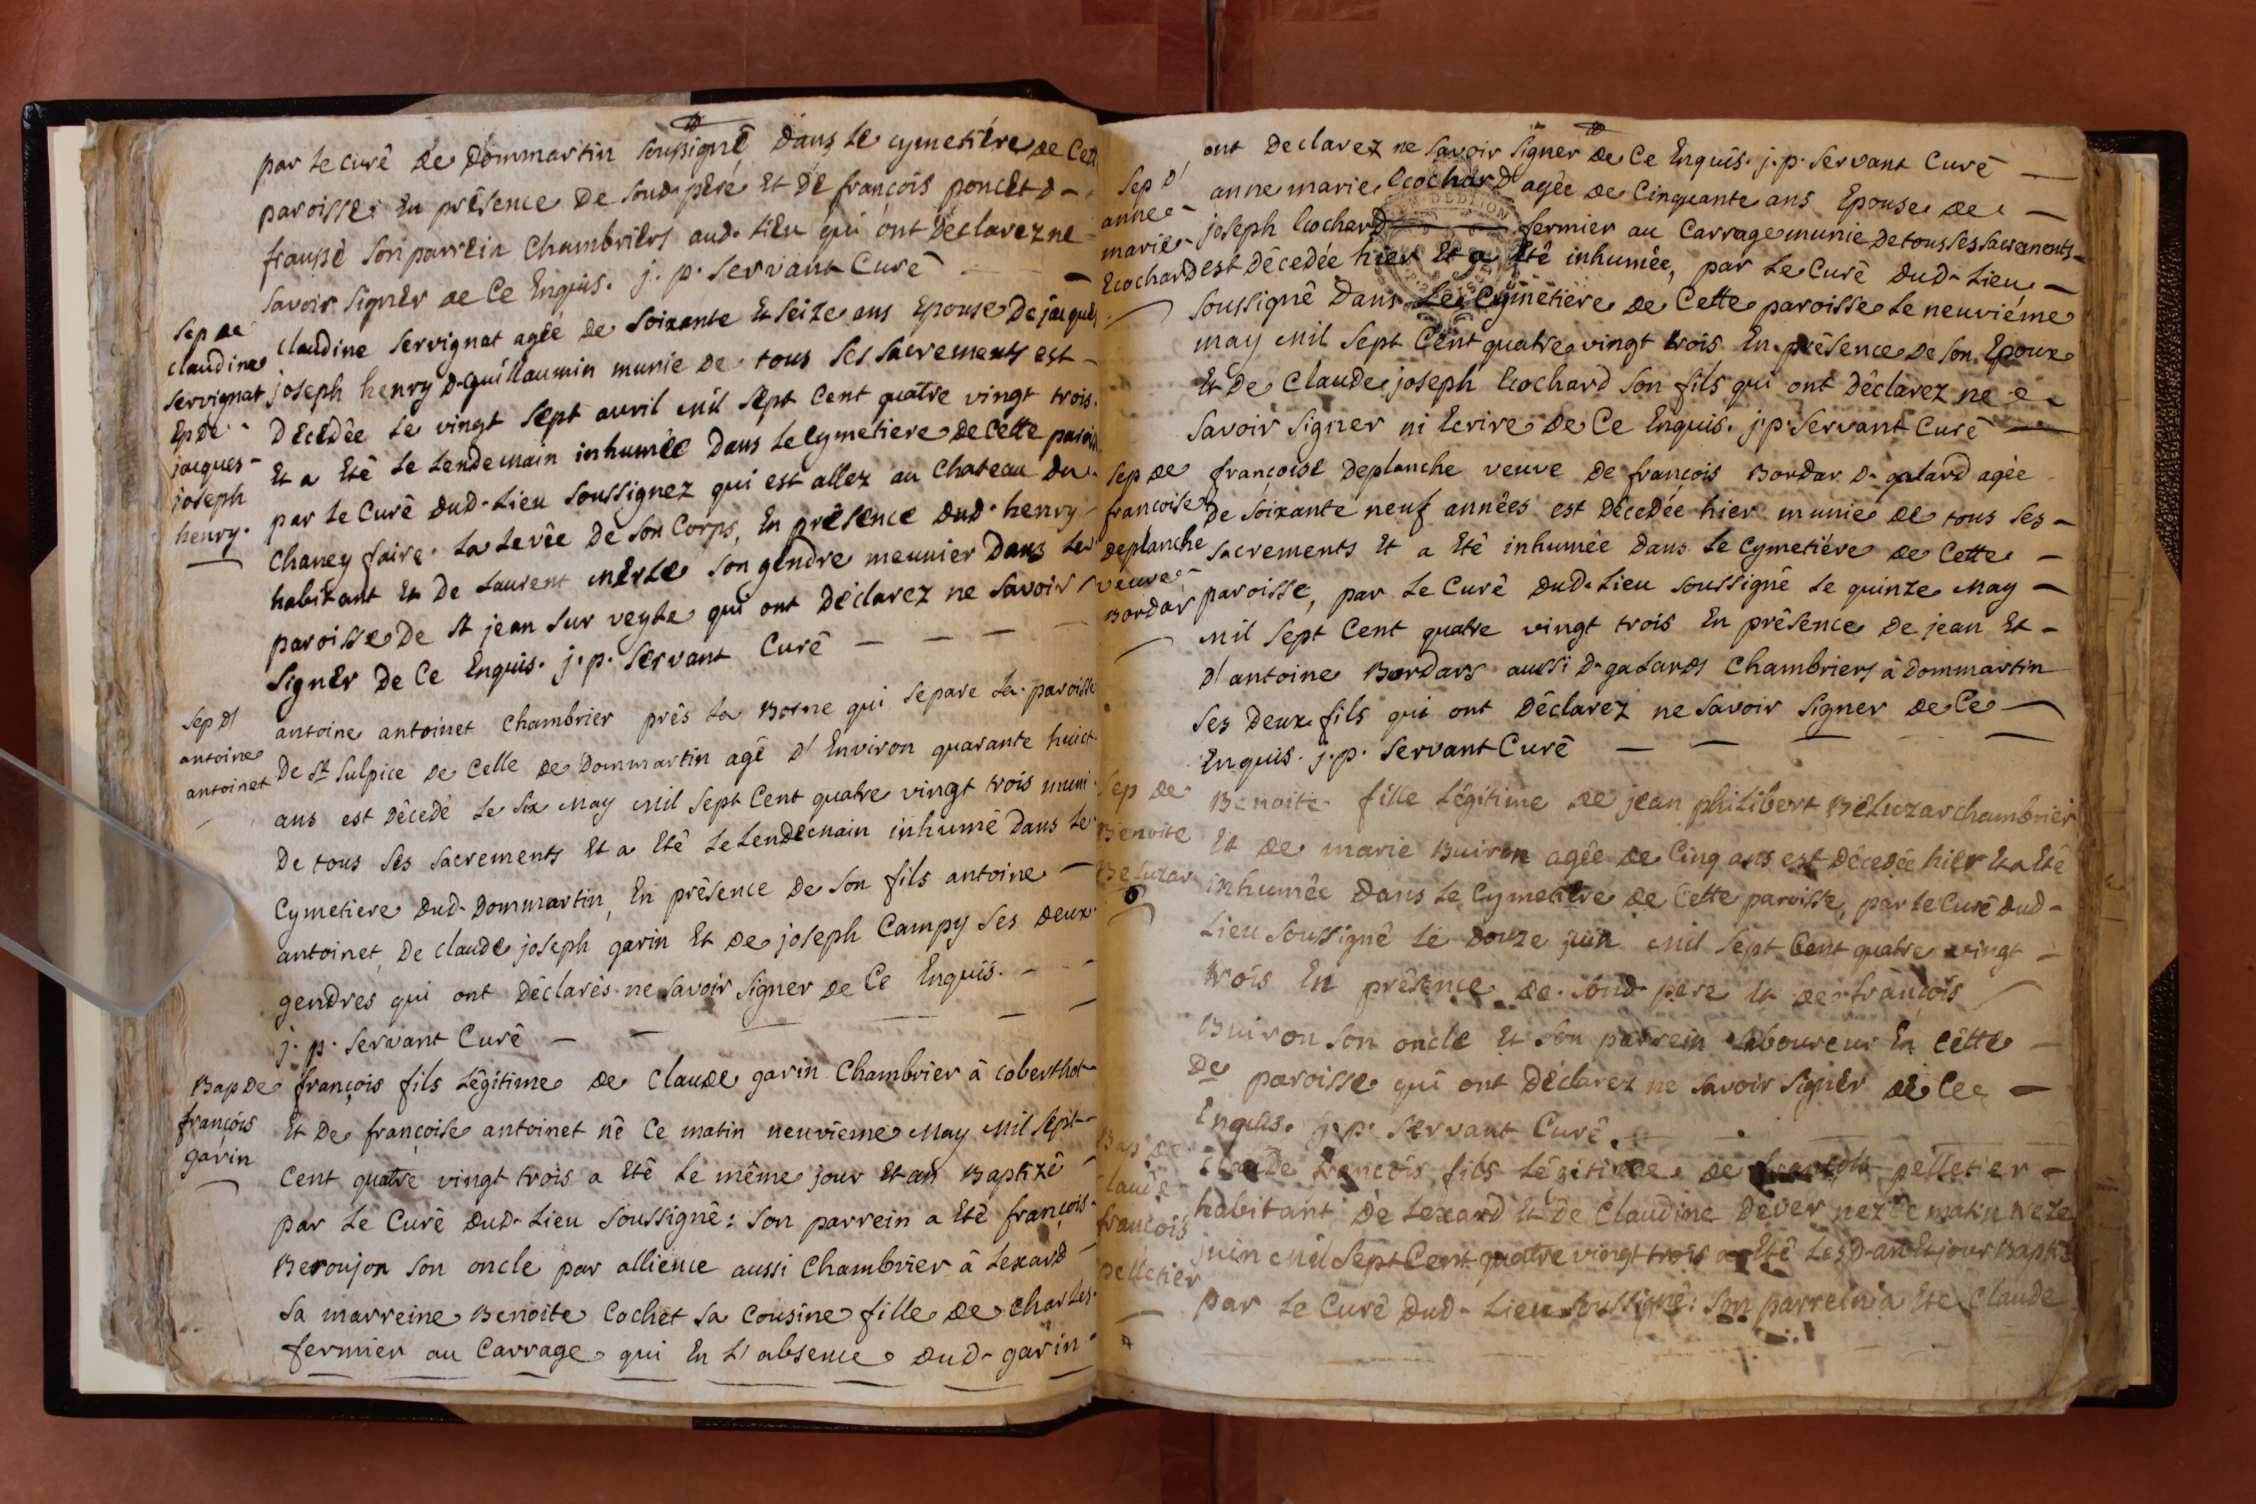 par le curé de dommartin soussigné dans le cymetiére de Cette
paroisse: En présence De sond. pere Et De françois poncet d-
fraussé son parrein Chambriers aud. Lieu qui ont Déclarez ne
savoir signer de Ce Enquis. j. p. Servant Curé
Sep de
claudine
Servignat
Ep de
jacques
joseph
henry.
Claudine Servignat agée de Soixante Et Seize ans Epouse De jacques
joseph henry d. guillaumin munie De tous Ses Sacrements est
Décédée Le vingt Sept avril mil Sept Cent quatre vingt trois.
Et a Eté Le Lendemain inhumée Dans Le Cymetiere De Cette paroisse
par Le Curé dud. Lieu Soussignez qui est allez au Chateau du
Chaney faire La Levée De Son Corps, En présence dud. henry
habitant Et De Laurent merle son gendre meunier Dans La
paroisse De St jean Sur veyle qui ont Déclarez ne Savoir
Signer De Ce Enquis. j. p. Servant Curé
Sep d'
antoine
antoinet
antoine antoinet Chambrier prês La Borne qui Separe La paroisse
De St Sulpice De Celle De Dommartin agé d'Environ quarante huict
ans est Décedé Le Six May mil Sept Cent quatre vingt trois muni
De tous Ses Sacrements Et a Eté Le Lendemain inhumé Dans Le
Cymetiere dud. Dommartin, En présence De son fils antoine
antoinet, De claude joseph garin Et De joseph Campy Ses Deux
gendres qui ont Déclarés ne Savoir Signer De Ce Enquis.
j. p. Servant Curé
Bap De
françois
garin
françois fils Légitime De Claude garin Chambrier à coberthot
Et De françoise antoinet né Ce matin neuvieme May mil Sept
Cent quatre vingt trois a Eté Le même jour Et an Baptizé
par Le Curé dud. Lieu Soussigné: Son parrein a Eté françois
Beroujon Son oncle par allience aussi Chambrier à Lexard
Sa marreine Benoite Cochet Sa Cousine fille De Charles
fermier au Carrage qui En L'absence dud. garin
ont Declarez ne Savoir Signer De Ce Enquis. j. p. Servant Curé
Sep d'
anne
marie
Ecochard
anne marie Ecochard agée De Cinquante ans Epouse De
joseph Ecochard fermier au Carrage munie De tous Ses Sacrements
est Décedée hier Et a Eté inhumée, par Le Curé dud. Lieu
Soussigné Dans Le Cymetiére De Cette paroisse Le neuviéme
may mil Sept Cent quatre vingt trois En présence De Son Epoux
Et De Claude joseph Ecochard Son fils qui ont Déclarez ne
Savoir Signer ni Ecrire De Ce Enquis. j. p. Servant Curé
Sep de
francoise
Deplanche
veuve
Bordar
francoise Deplanche veuve De françois Bordar d. galard agée
De Soixante neuf années est Décedée hier munie De tous Ses
Sacrements Et a Eté inhumée Dans Le Cymetiére De Cette
paroisse, par Le Curé dud. Lieu Soussigné Le quinze May
mil Sept Cent quatre vingt trois En présence De jean Et
d'antoine Bordars aussi d. galards Chambriers à Dommartin
Ses Deux fils qui ont Déclarez ne Savoir Signer De Ce
Enquis. j. p. Servant Curé
Sep de
Benoite
Beluzar
Benoite fille Légitime De jean philibert Beluzar chambrier
Et De marie Buiron agée De Cinq ans est Décedée hier Et a Eté
inhumée Dans Le Cymetiére De Cette paroisse, par Le Curé dud.
Lieu Soussigné Le Douze juin mil Sept Cent quatre vingt
trois En présence De Sond. pere Et De françois
Buiron Son oncle Et Son parrein Laboureur En Cette
De paroisse qui ont Déclarez ne Savoir Signer De Ce
Enquis. j. p. Servant Curé.
Bap De
Claude
françois
pelletier
Claude francois fils Légitime De pelletier
habitant De Lexard Et De Claudine Dever nez Ce matin
juin mil Sept Cent quatre vingt trois a Eté Lesd. an Et jour Baptizé
par Le Curé dud. Lieu Soussigné: Son parrein a Eté Claude